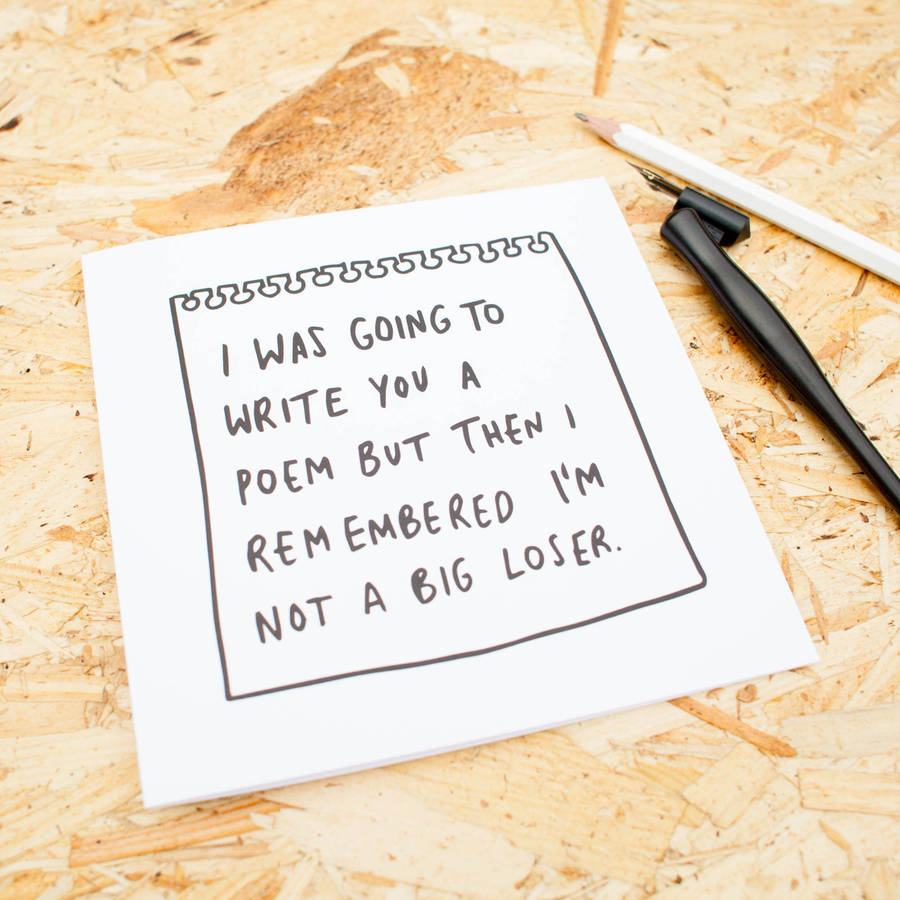 I WAS GOING TO
WRITE YOU A
POEM BUT THEN I
REMEMBERED I'M
NOT A BIG LOSER.